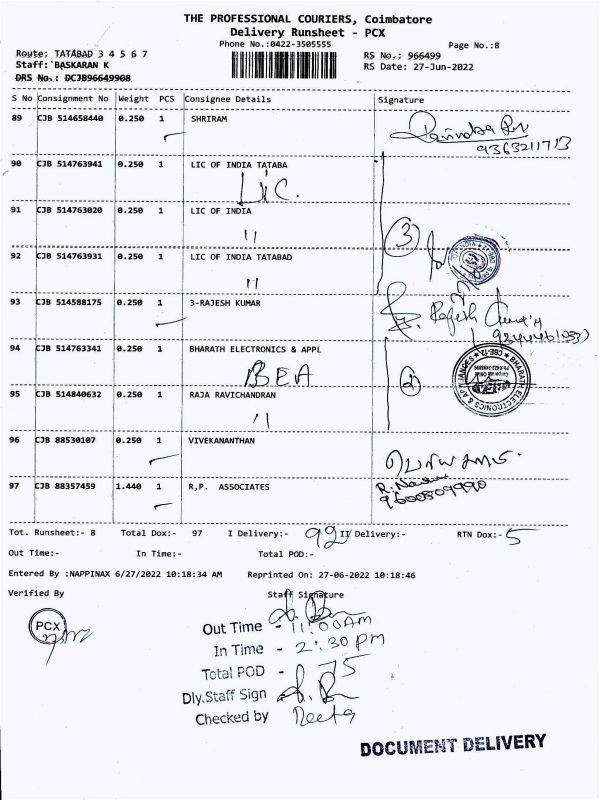 THE PROFESSIONAL COURIERS, Coimbatore
Delivery Runsheet - PCX
Phone No.:0422-3505555
Page No.:8
Route: TATABAD 3 4 5 6 7
RS No.: 966499
Staff: BASKARAN K
RS Date: 27-Jun-2022
DRS No.: DCJB96649908
S No Consignment No Weight PCS Consignee Details Signature
89 CJB 514658440 0.250 1 SHRIRAM
9363211713
90 CJB 514763941 0.250 1 LIC OF INDIA TATABA
LIC.
91 CJB 514763020 0.250 1 LIC OF INDIA
11
3
92 CJB 514763931 0.250 1 LIC OF INDIA TATABAD
11
93 CJB 514588175 0.250 1 3-RAJESH KUMAR
Rajesh
94 CJB 514763341 0.250 1 BHARATH ELECTRONICS & APPL
BEA
2
BHARATH ELECTRONICS & APPLIANCES
CBE-12
95 CJB 514840632 0.250 1 RAJA RAVICHANDRAN
11
96 CJB 88530107 0.250 1 VIVEKANANTHAN
97 CJB 88357459 1.440 1 R,P. ASSOCIATES
9600809990
Tot. Runsheet:- 8 Total Dox:- 97 I Delivery:- 92 II Delivery:- RTN Dox:- 5
Out Time:- In Time:- Total POD:-
Entered By :NAPPINAX 6/27/2022 10:18:34 AM Reprinted On: 27-06-2022 10:18:46
Verified By Staff Signature
PCX
Out Time - 11:00AM
In Time - 2:30 PM
Total POD - 75
Dly.Staff Sign
Checked by Neeta
DOCUMENT DELIVERY